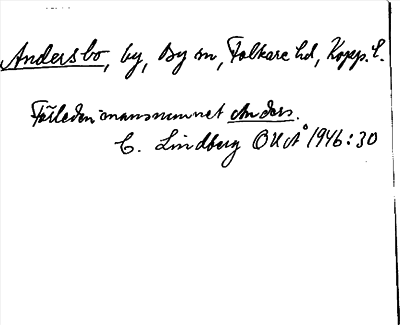 Andersbo, by, By sn, Folkare hd, Kopp. l.
Förleden mansnamnet Anders.
C. Lindberg OUÅ 1946:30